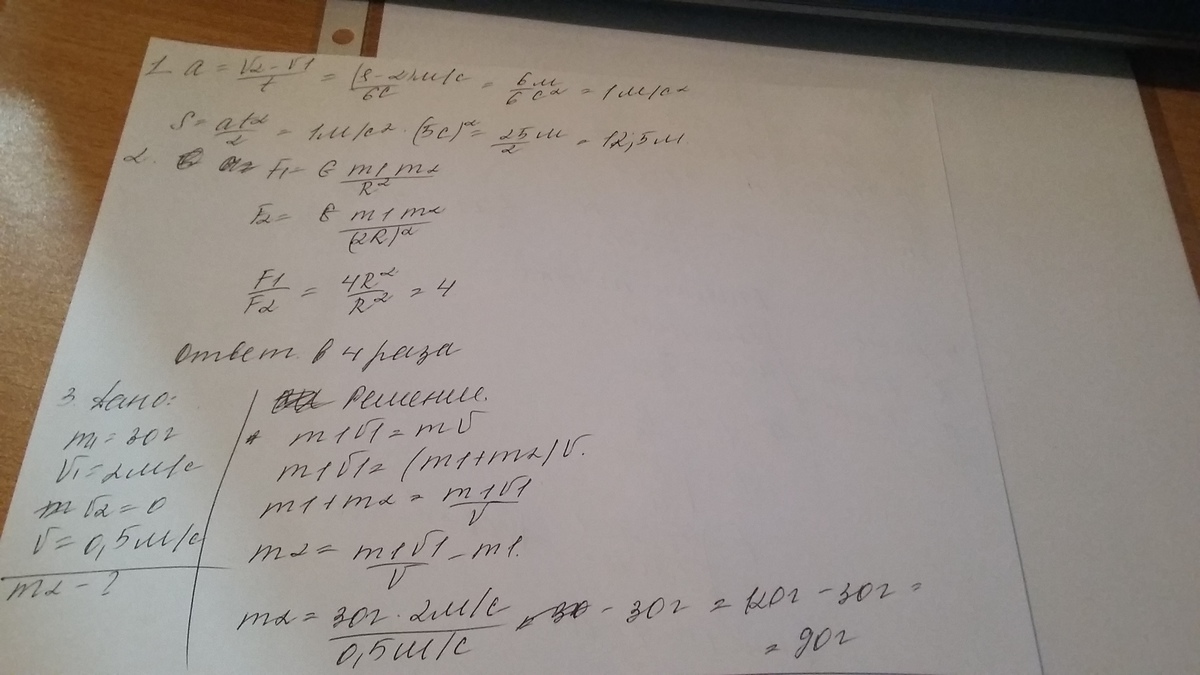 1. a = (v2 - v1)/t = (8-2)м/с / 6с = 6м/6с² = 1м/с²
S = at²/2 = 1м/с² · (5с)² = 25/2 м = 12,5м.
2. F1 = G m1 m2 / R²
F2 = G m1 m2 / (2R)²
F1/F2 = 4R²/R² = 4
ответ. в 4 раза
3. Дано:
m1 = 30г
v1 = 2м/с
v2 = 0
v = 0,5м/с
m2 - ?
Решение.
m1v1 = mv
m1v1 = (m1+m2)v.
m1+m2 = m1v1/v
m2 = m1v1/v - m1.
m2 = 30г · 2м/с / 0,5м/с - 30г = 120г - 30г =
= 90г